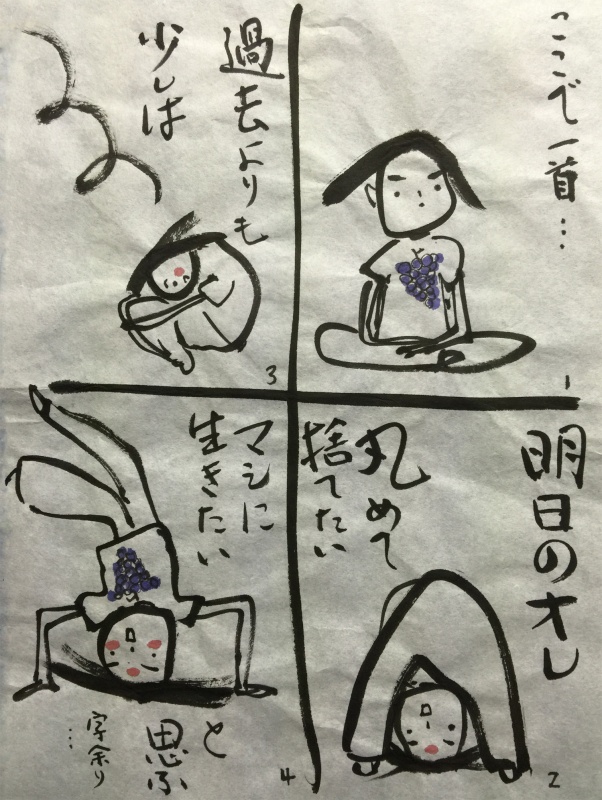 ここで一首…
1
明日のオレ
丸めて
捨てたい
2
過去よりも
少しは
3
マシに
生きたい
と
思ふ
字余り…
4